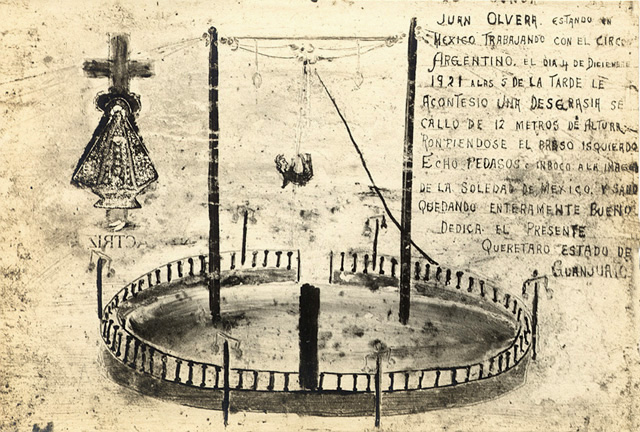 JUAN OLVERA. ESTANDO EN
MEXICO TRABAJANDO CON EL CIRCO
ARGENTINO. EL DIA 4 DE DICIEMBRE
1921 A LAS 5 DE LA TARDE LE
ACONTESIO UNA DESGRASIA SE
CALLO DE 12 METROS DE ALTURA
RONPIENDOSE EL BRASO ISQUIERDO
ECHO PEDASOS E INBOCO A LA IMAGEN
DE LA SOLEDAD DE MEXICO. Y SANO
QUEDANDO ENTERAMENTE BUENO
DEDICA EL PRESENTE
QUERETARO ESTADO DE
GUANJUATO